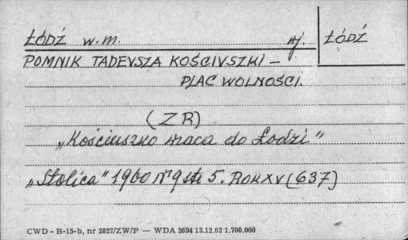 ŁÓDŹ w.m. ŁÓDŹ
POMNIK TADEUSZA KOŚCIUSZKI –
PLAC WOLNOŚCI.
(ZR)
„Kościuszko wraca do Łodzi”
„Stolica” 1960 Nr 9 str 5. ROK XV (637)
CWD - B-15-b, nr 2827/ZW/P — WDA 2694 13.12.62 1.700.000